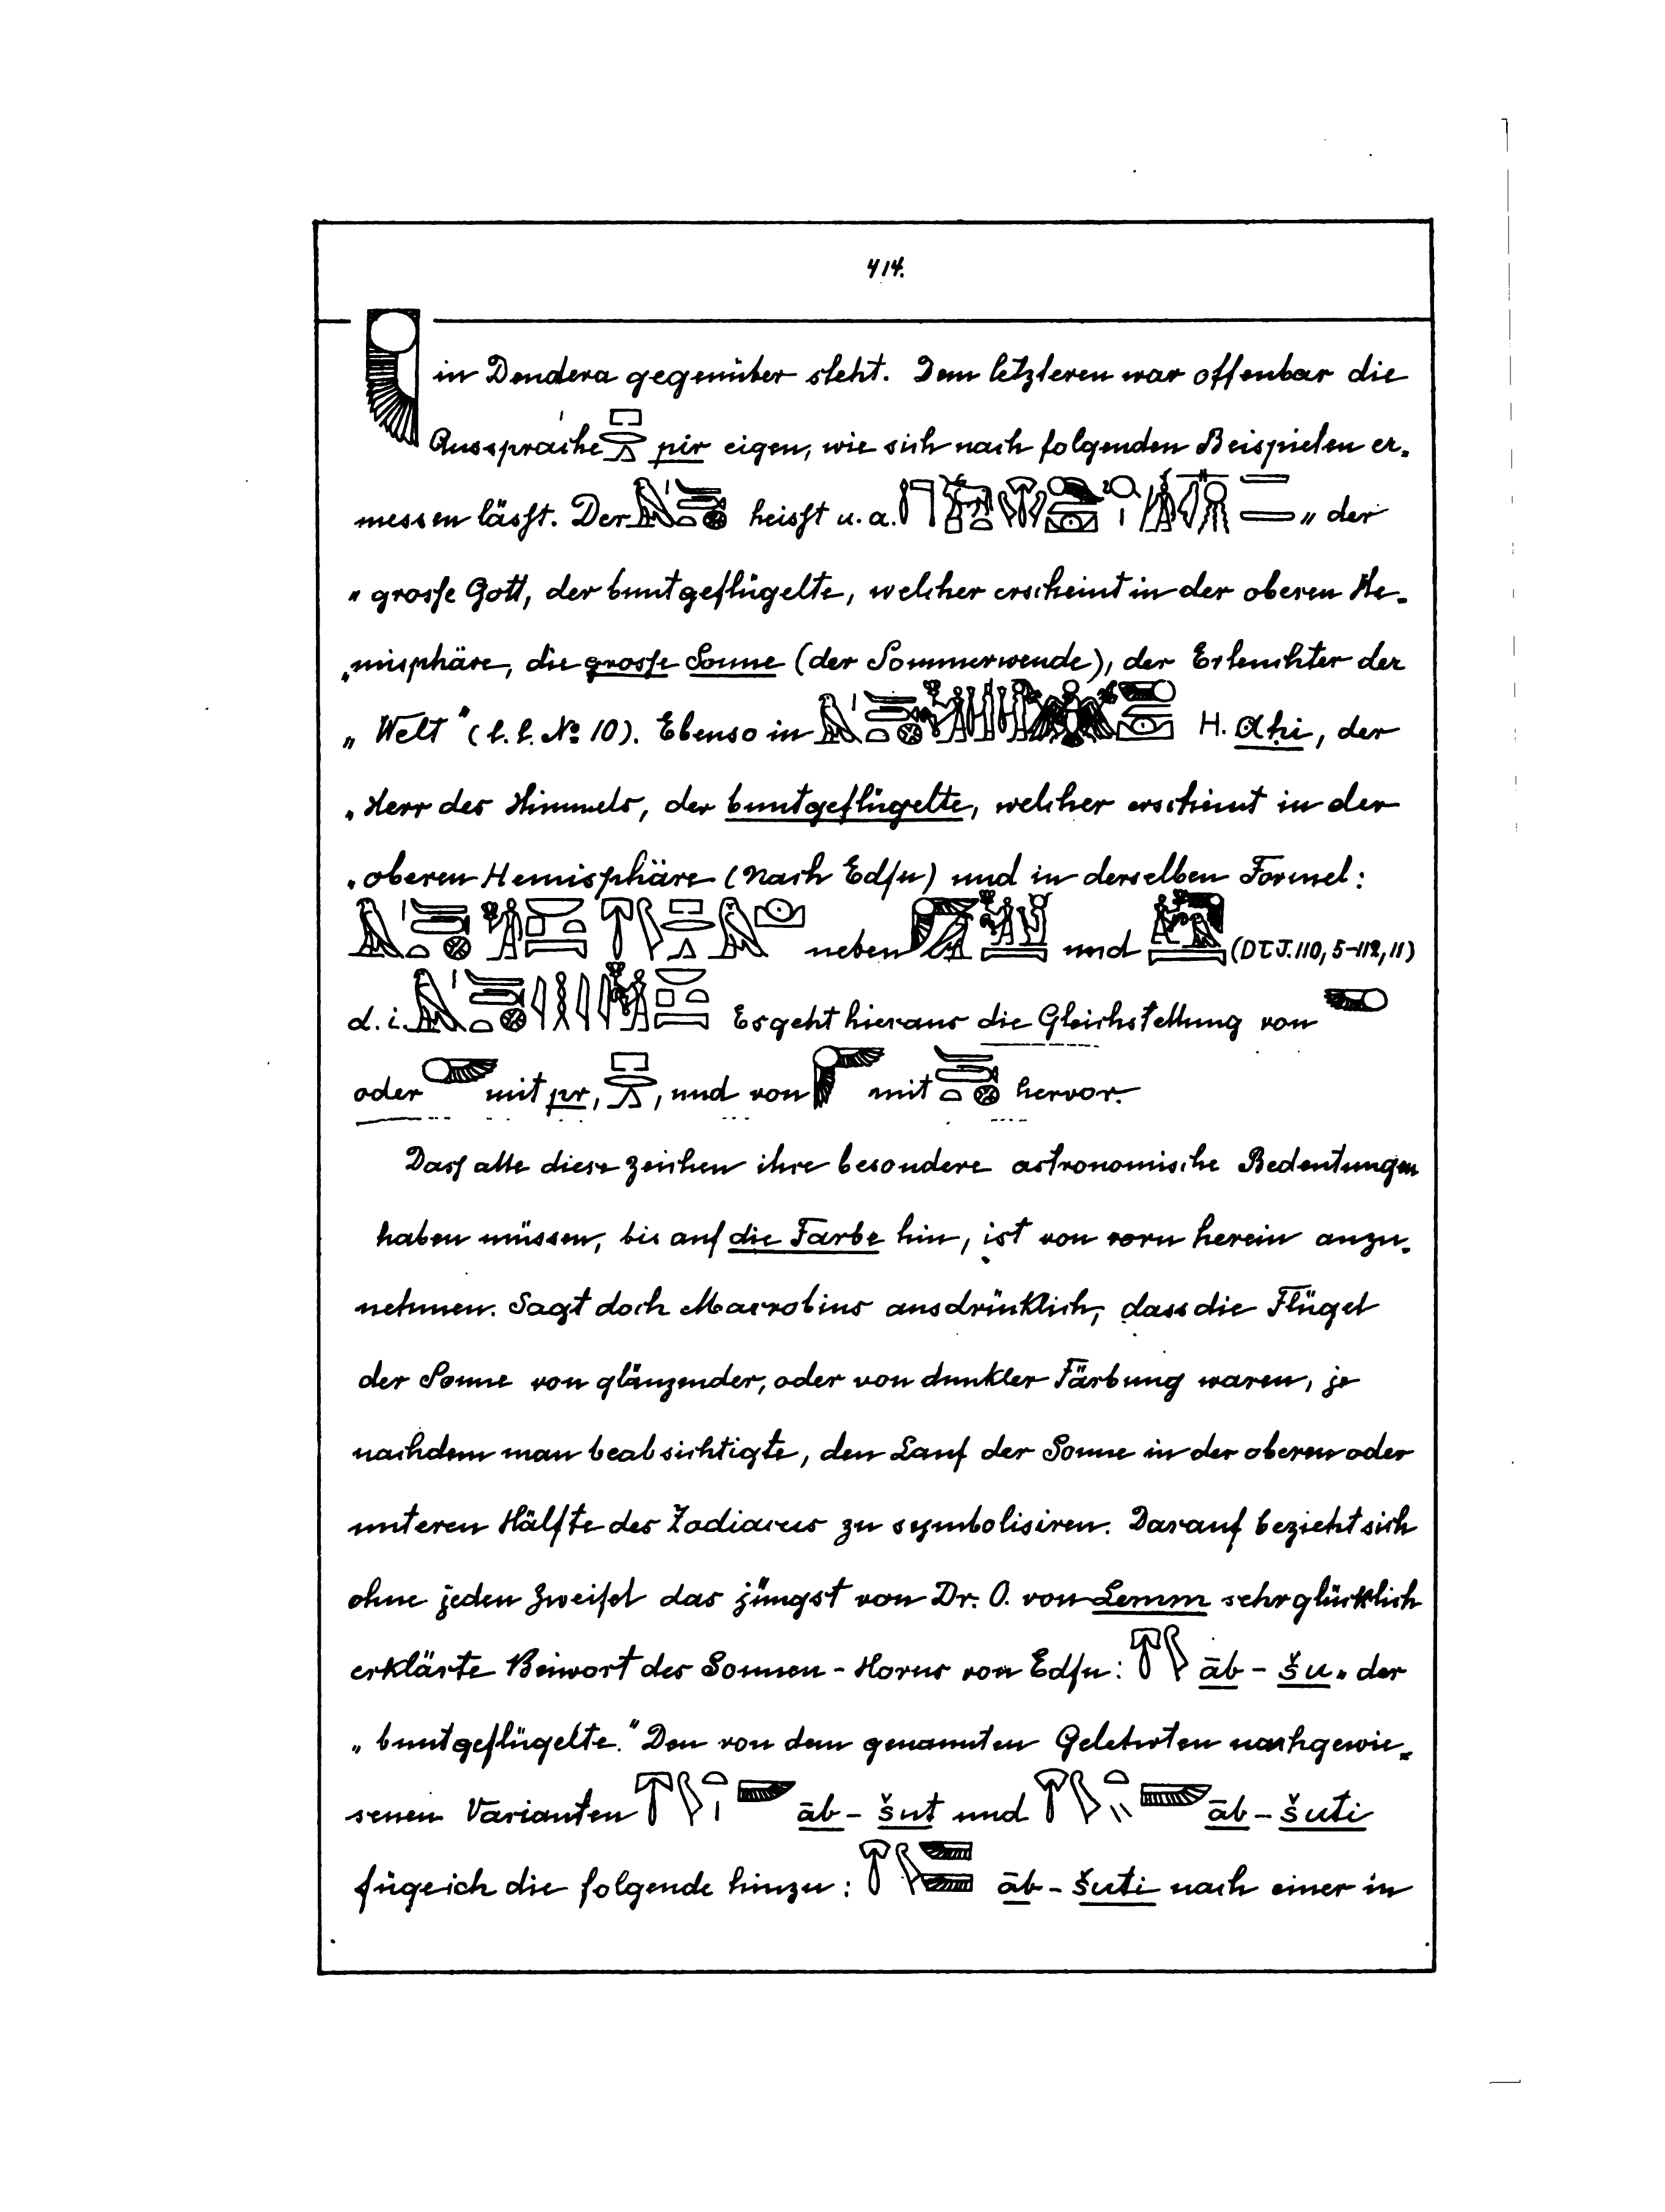 414.
in Dendera gegenüber steht. Dem letzteren war offenbar die
Aussprache pir eigen, wie sich nach folgenden Beispielen er-
messen lässt. Der heisst u. a. „der
„grosse Gott, der buntgeflügelte, welcher erscheint in der oberen He-
„misphäre, die grosse Sonne (der Sommerwende), der Erleuchter der
„Welt" (l. l. No 10). Ebenso in H. Aḥi, der
„Herr des Himmels, der buntgeflügelte, welcher erscheint in der
„oberen Hemisphäre (nach Edfu) und in derselben Formel:
neben und (DTJ. 110, 5-112, 11)
d. i. Es geht hieraus die Gleichstellung von
oder mit pr, , und von mit hervor.
Dass alle diese Zeichen ihre besondere astronomische Bedeutungen
haben müssen, bis auf die Farbe hin, ist von vorn herein anzu-
nehmen. Sagt doch Macrobius ausdrücklich, dass die Flügel
der Sonne von glänzender, oder von dunkler Färbung waren, je
nachdem man beabsichtigte, den Lauf der Sonne in der oberen oder
unteren Hälfte des Zodiacus zu symbolisiren. Darauf bezieht sich
ohne jeden Zweifel das jüngst von Dr. O. von Lemm sehr glücklich
erklärte Beiwort des Sonnen-Horus von Edfu: āb-šu „der
„buntgeflügelte." Den von dem genannten Gelehrten nachgewie-
senen Varianten āb-šut und āb-šuti
füge ich die folgende hinzu: āb-šuti nach einer in